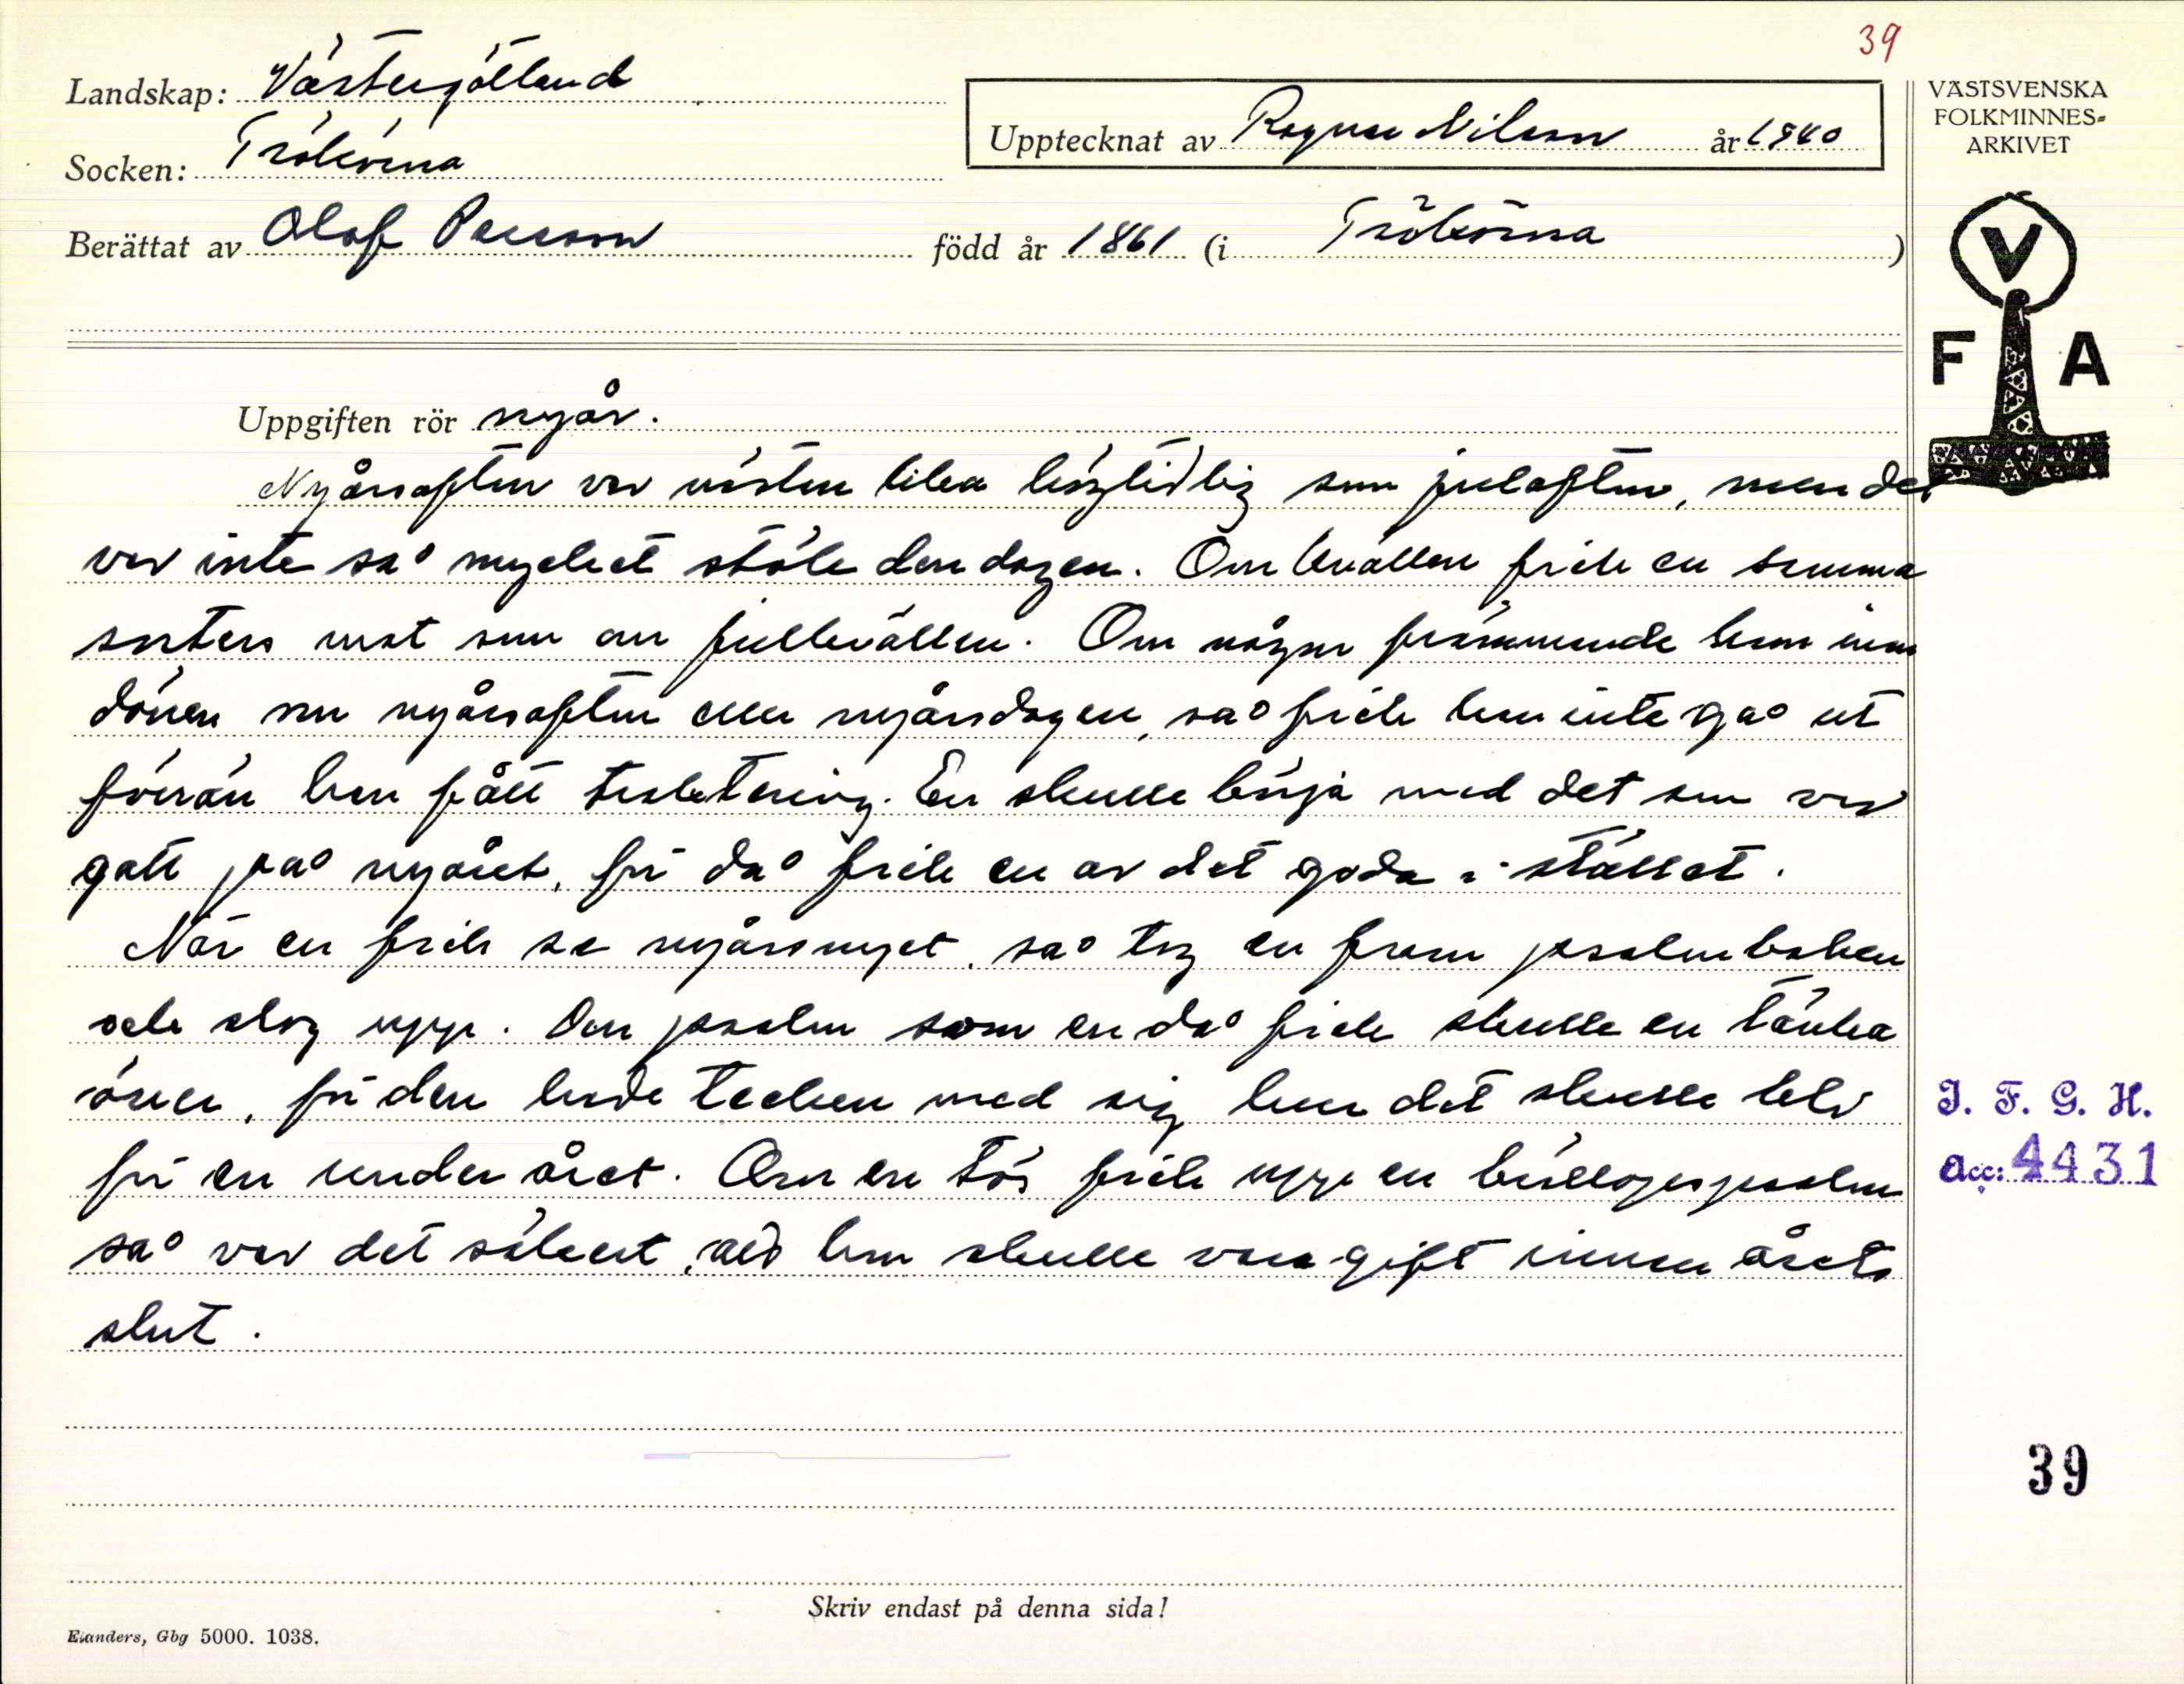 39
Landskap: Västergötland
Socken: Tråvörna
Upptecknat av Ragnar Nilsson år 1940
VÄSTSVENSKA
FOLKMINNES=
ARKIVET
Berättat av Olof Persson född år 1861 (i Trökörna)
V
F A
Uppgiften rör nyår.
Nyårsafton var nästan lika högtidlig som julafton, men det
var inte så mycket stök den dagen. Om kvällen fick en samma
sorters mat som om julkvällen. Om någon främmande kom inom
dörren om nyårsafton eller nyårsdagen, så fick han inte gå ut
förrän han fått traktering. En skulle börja med det som var
gott på nyåret, för då fick en av det goda i stället.
När en fick se nyårsnyet, så tog en fram psalmboken
och slog upp. Den psalm som en då fick skulle en tänka
över, för den hade tecken med sig hur det skulle bli
för en under året. Om en tös fick upp en bröllopspsalm
så var det säkert, att hon skulle vara gift innan årets
slut.
I. F. G. H.
Acc: 4431
39
Skriv endast på denna sida!
Elanders, Gbg 5000. 1038.